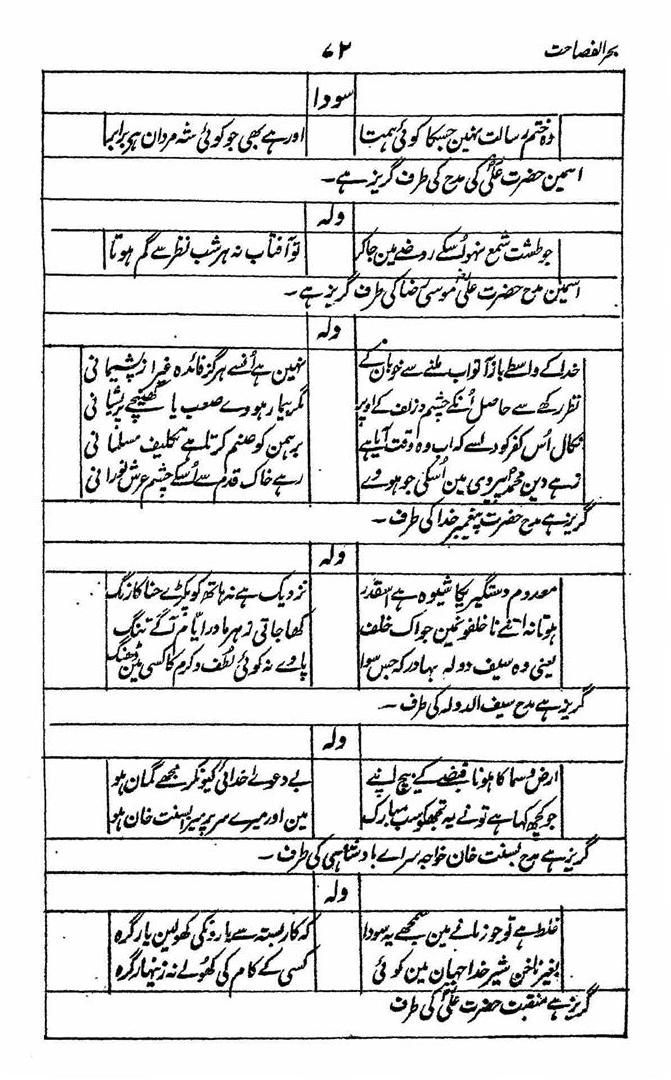 بحر الفصاحت
۷۲
سودا
وہ ختم رسالت نہین جسکا کوئی ہمتا اور ہے بھی جو کوئی شہ مردان ہر برابر
اسمین حضرت علیؓ کی مدح کی طرف گریز ہے۔
ولہ
جو طشت شمع نہو اُسکے روضے مین جاکر تو آفتاب نہ ہر شب نظر سے گم ہوتا
اسمین مدح حضرت علی موسیٰ رضا کی طرف گریز ہے۔
ولہ
خدا کے واسطے باز آ تو اب ملنے سے خوبان کے نہین ہے اُنسے ہرگز فائدہ غیر از پشیمانی
نظر رکھے سے حاصل اُنکے چشم و زلف کے اوپر مگر بیمار ہووے صعب یا کھینچے پریشانی
نکال اُس کفر کو دل سے کہ اب وہ وقت آیا ہے برہمن کو صنم کرتا ہے تکلیف مسلمانی
زہے دین محمدؐ پیروی مین اُسکی جو ہووے رہے خاک قدم سے اُسکے چشم عرش نورانی
گریز ہے مدح حضرت پیغمبر خدا کی طرف ۔
ولہ
معدوم دستگیری کا شیوہ ہے اسقدر نزدیک ہے نہ ہاتھ کو پکڑے حنا کا رنگ
ہوتا نہ اتنے ناخلفون مین جو اک خلف کھا جاتی زہر مادر ایّام آکے تنگ
یعنی وہ سیف دولہ بہادر کہ جس سوا پاوے نہ کوئی لطف و کرم کا کسی مین ڈھنگ
گریز ہے مدح سیف الدولہ کی طرف ۔
ولہ
ارض و سما کا ہونا قبضے کے بیچ اپنے بے دعوے خدائی کیونکر مجھے گمان ہو
جو کچھ کہا ہے تونے یہ تجھکو سب مبارک مین اور میرے سر پر میرا بسنت خان ہو
گریز ہے مدح بسنت خان خواجہ سراے بادشاہی کی طرف ۔
ولہ
غلط ہے تو جو زمانے مین سمجھے یہ سودا کہ کار بستہ سے یارونکی کھولین یار گرہ
بغیر ناخن شیر خدا جہان مین کوئی کسی کے کام کی کھولے نہ زینہار گرہ
گریز ہے منقبت حضرت علیؓ کی طرف